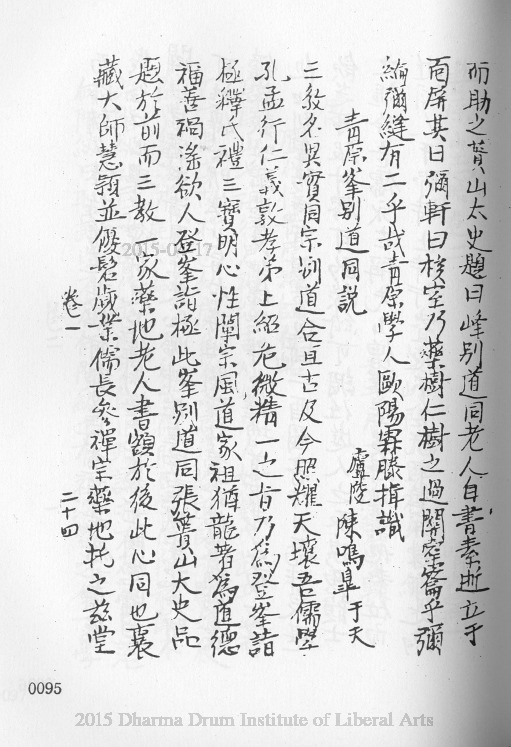 而助之黃山太史題曰峰別道同老人自書素逝立于
而屏其曰彌軒曰核室乃藥樹仁樹之過關室齋乎彌
綸彌縫有二乎哉青原學人歐陽霖滕揖識
青原峯別道同說
廬陵 陳鳴皐 于天
三教名異實同宗別道合亘古及今照耀天壤吾儒學
孔孟行仁義敦孝弟上紹危微精一之旨乃為登峯詣
極釋氏禮三寶明心性闡宗風道家祖猶龍著為道德
福善禍淫欲人登峯詣極此峯別道同張簣山大史品
題於前而三教一家藥地老人書額於後此心同也裏
藏大師慧穎並優髫歲業儒長參禪宗藥地托之茲堂
卷一
二十四
0095
2015 Dharma Drum Institute of Liberal Arts